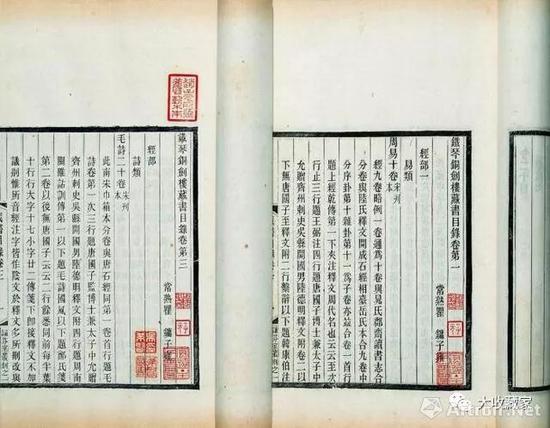 鐵琴銅劍樓藏書目錄卷第一
常熟瞿 鏞子雍
經部一
易類
周易十卷 宋刊本
經九卷略例一卷通爲十卷與晁氏郡齋讀書志合
分卷與陸氏釋文開成石經相臺岳氏本合九卷中
分序卦第十雜卦第十一爲子卷亦並合卷一首行
題上經乾傳第一下夾注釋文周代名也云云至次
行止三行題王弼注四行題唐國子博士兼太子中
允贈齊州刺史吳縣開國男陸德明釋文附卷二以
下無唐國子至釋文附二行繫辭以下題韓康伯注
鐵琴銅劍樓藏書目錄卷第三
常熟瞿 鏞子雍
經部
詩類
毛詩二十卷 宋刊本
此南宋巾箱本分卷與唐石經同第一卷首行題毛
詩卷第一次三行題唐國子監博士兼太子中允贈
齊州刺史吳縣開國男陸德明釋文附四行題周南
關雎詁訓傳第一以下題毛詩國風以下題鄭氏箋
第二卷以後無唐國子云云二行餘悉同前每半葉
十行行大字十七小字廿二傳箋下卽接釋文不加
識別惟所音經注字皆作陰文於釋文多所刪改與
大收藏家
Artron.Net